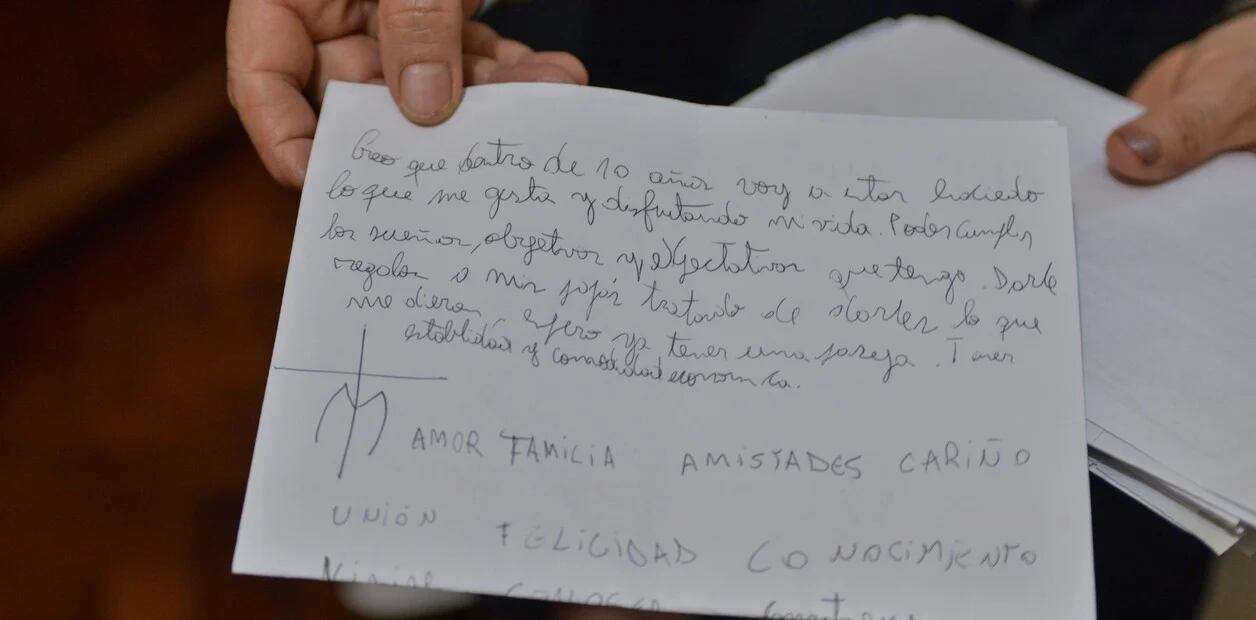 Creo que dentro de 10 años voy a estar haciedo
lo que me gusta y disfrutando mi vida. Poder cumplir
los sueños, objetivos y expectativas que tengo. Darle
regalos a mis papás tratando de darles lo que
me dieron. Espero ya tener una pareja. Tener
estabilidad y comodidad economica.
AMOR FAMILIA AMISTADES CARIÑO
UNIÓN FELICIDAD CONOCIMIENTO
CONOCER